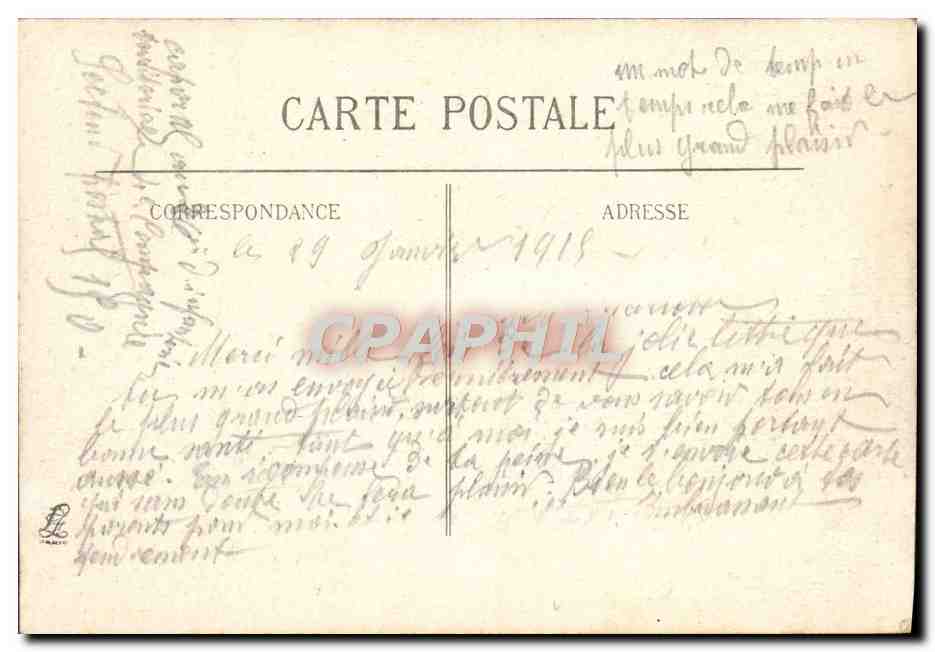 un mot de temp en
temps cela me fait le
plus grand plaisir
CARTE POSTALE
CORRESPONDANCE
ADRESSE
le 29 Janvier 1915
CPAPHIL
Merci mille la jolie lettre que
tu m'as envoyé dernièrement cela m'a fait
le plus grand plaisir, surtout de vous savoir tous en
bonne santé. tant qu'à moi je suis bien portant
aussi. En de ta peine, je t'envoie cette carte
qui sans doute te fera plaisir. Bien le bonjour à tes
parents pour moi et je embrassant
tendrement
caporal d'infanterie
territoriale Compagnie
Secteur postal 150
LL